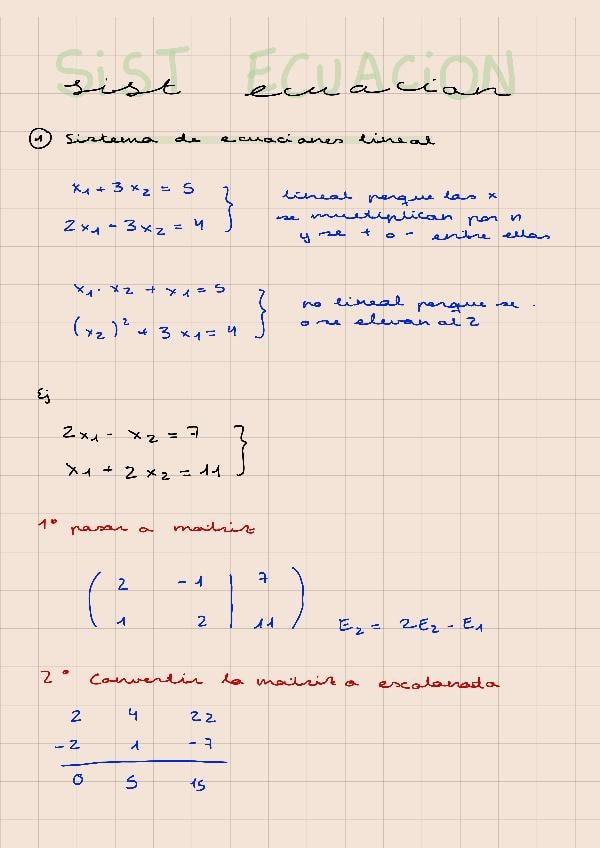 SiST ECUACiON
sist ecuacion
1 Sistema de ecuaciones lineal
x1 + 3x2 = 5
2x1 - 3x2 = 4
lineal porque las x
se multiplican por n
y se + o - entre ellas
x1 · x2 + x1 = 5
(x2)² + 3x1 = 4
no lineal porque se ·
o se elevan al 2
Ej
2x1 - x2 = 7
x1 + 2x2 = 11
1º pasar a matriz
( 2 -1 | 7 )
( 1 2 | 11 )
E2 = 2E2 - E1
2º Convertir la matriz a escalonada
2 4 22
-2 1 -7
0 5 15